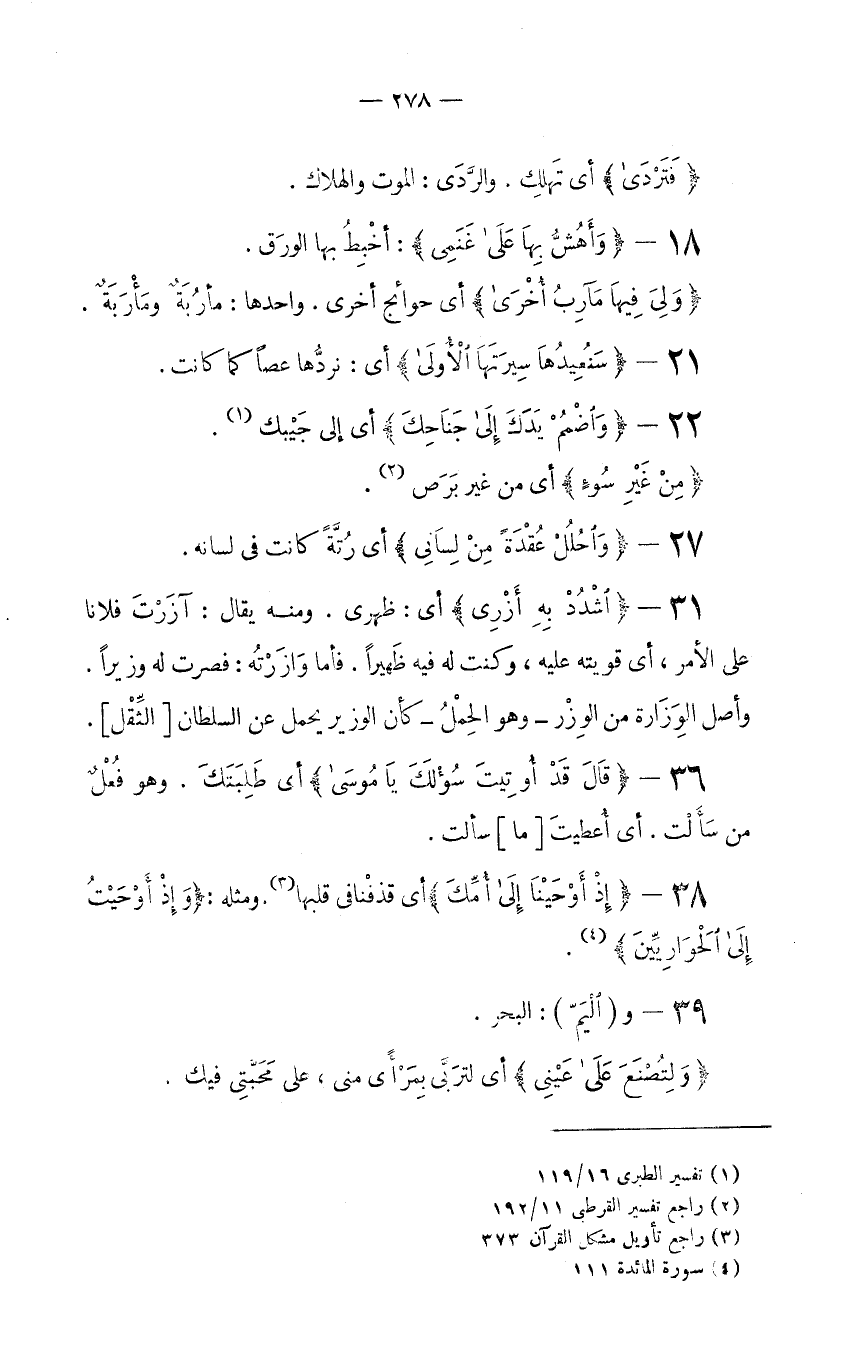 — ٢٧٨ —
﴿ فَتَرْدَىٰ ﴾ أى تَهلِك . والرَّدَى : الموت والهلاك .
١٨ — ﴿ وَأَهُشُّ بِهَا عَلَىٰ غَنَمِى ﴾ : أخْبِطُ بها الورَق .
﴿ وَلِىَ فِيهَا مَآرِبُ أُخْرَىٰ ﴾ أى حوائج أخرى . واحدها : مأرُبَةٌ ومَأْرَبَةٌ .
٢١ — ﴿ سَنُعِيدُهَا سِيرَتَهَا ٱلْأُولَىٰ ﴾ أى : نردُّها عصاً كما كانت .
٢٢ — ﴿ وَٱضْمُمْ يَدَكَ إِلَىٰ جَنَاحِكَ ﴾ أى إلى جَيْبك (١) .
﴿ مِنْ غَيْرِ سُوءٍ ﴾ أى من غير بَرَص (٢) .
٢٧ — ﴿ وَٱحْلُلْ عُقْدَةً مِنْ لِسَانِى ﴾ أى رُتَّةً كانت فى لسانه .
٣١ — ﴿ ٱشْدُدْ بِهِ أَزْرِى ﴾ أى : ظهرى . ومنه يقال : آزَرْتَ فلانا
على الأمر ، أى قويته عليه ، وكنت له فيه ظَهيراً . فأما وَازَرْتُه : فصرت له وزيراً .
وأصل الوِزَارة من الوِزْر ـ وهو الحِمْلُ ـ كأن الوزير يحمل عن السلطان [ الثِّقْل ] .
٣٦ — ﴿ قَالَ قَدْ أُوتِيتَ سُؤْلَكَ يَا مُوسَىٰ ﴾ أى طَلِبَتَكَ . وهو فُعْلٌ
من سَأَلْت . أى أُعطيتَ [ ما ] سألت .
٣٨ — ﴿ إِذْ أَوْحَيْنَا إِلَىٰ أُمِّكَ ﴾ أى قذفْنا فى قلبها (٣) . ومثله : ﴿ وَ إِذْ أَوْحَيْتُ
إِلَىٰ ٱلْحَوَارِيِّينَ ﴾ (٤) .
٣٩ — و ( ٱلْيَمّ ) : البحر .
﴿ وَ لِتُصْنَعَ عَلَىٰ عَيْنِى ﴾ أى لتربَّى بِمَرْأًى منى ، على مَحَبَّتِى فيك .
(١) تفسير الطبرى ١١٩/١٦
(٢) راجع تفسير القرطبى ١٩٢/١١
(٣) راجع تأويل مشكل القرآن ٣٧٣
(٤) سورة المائدة ١١١